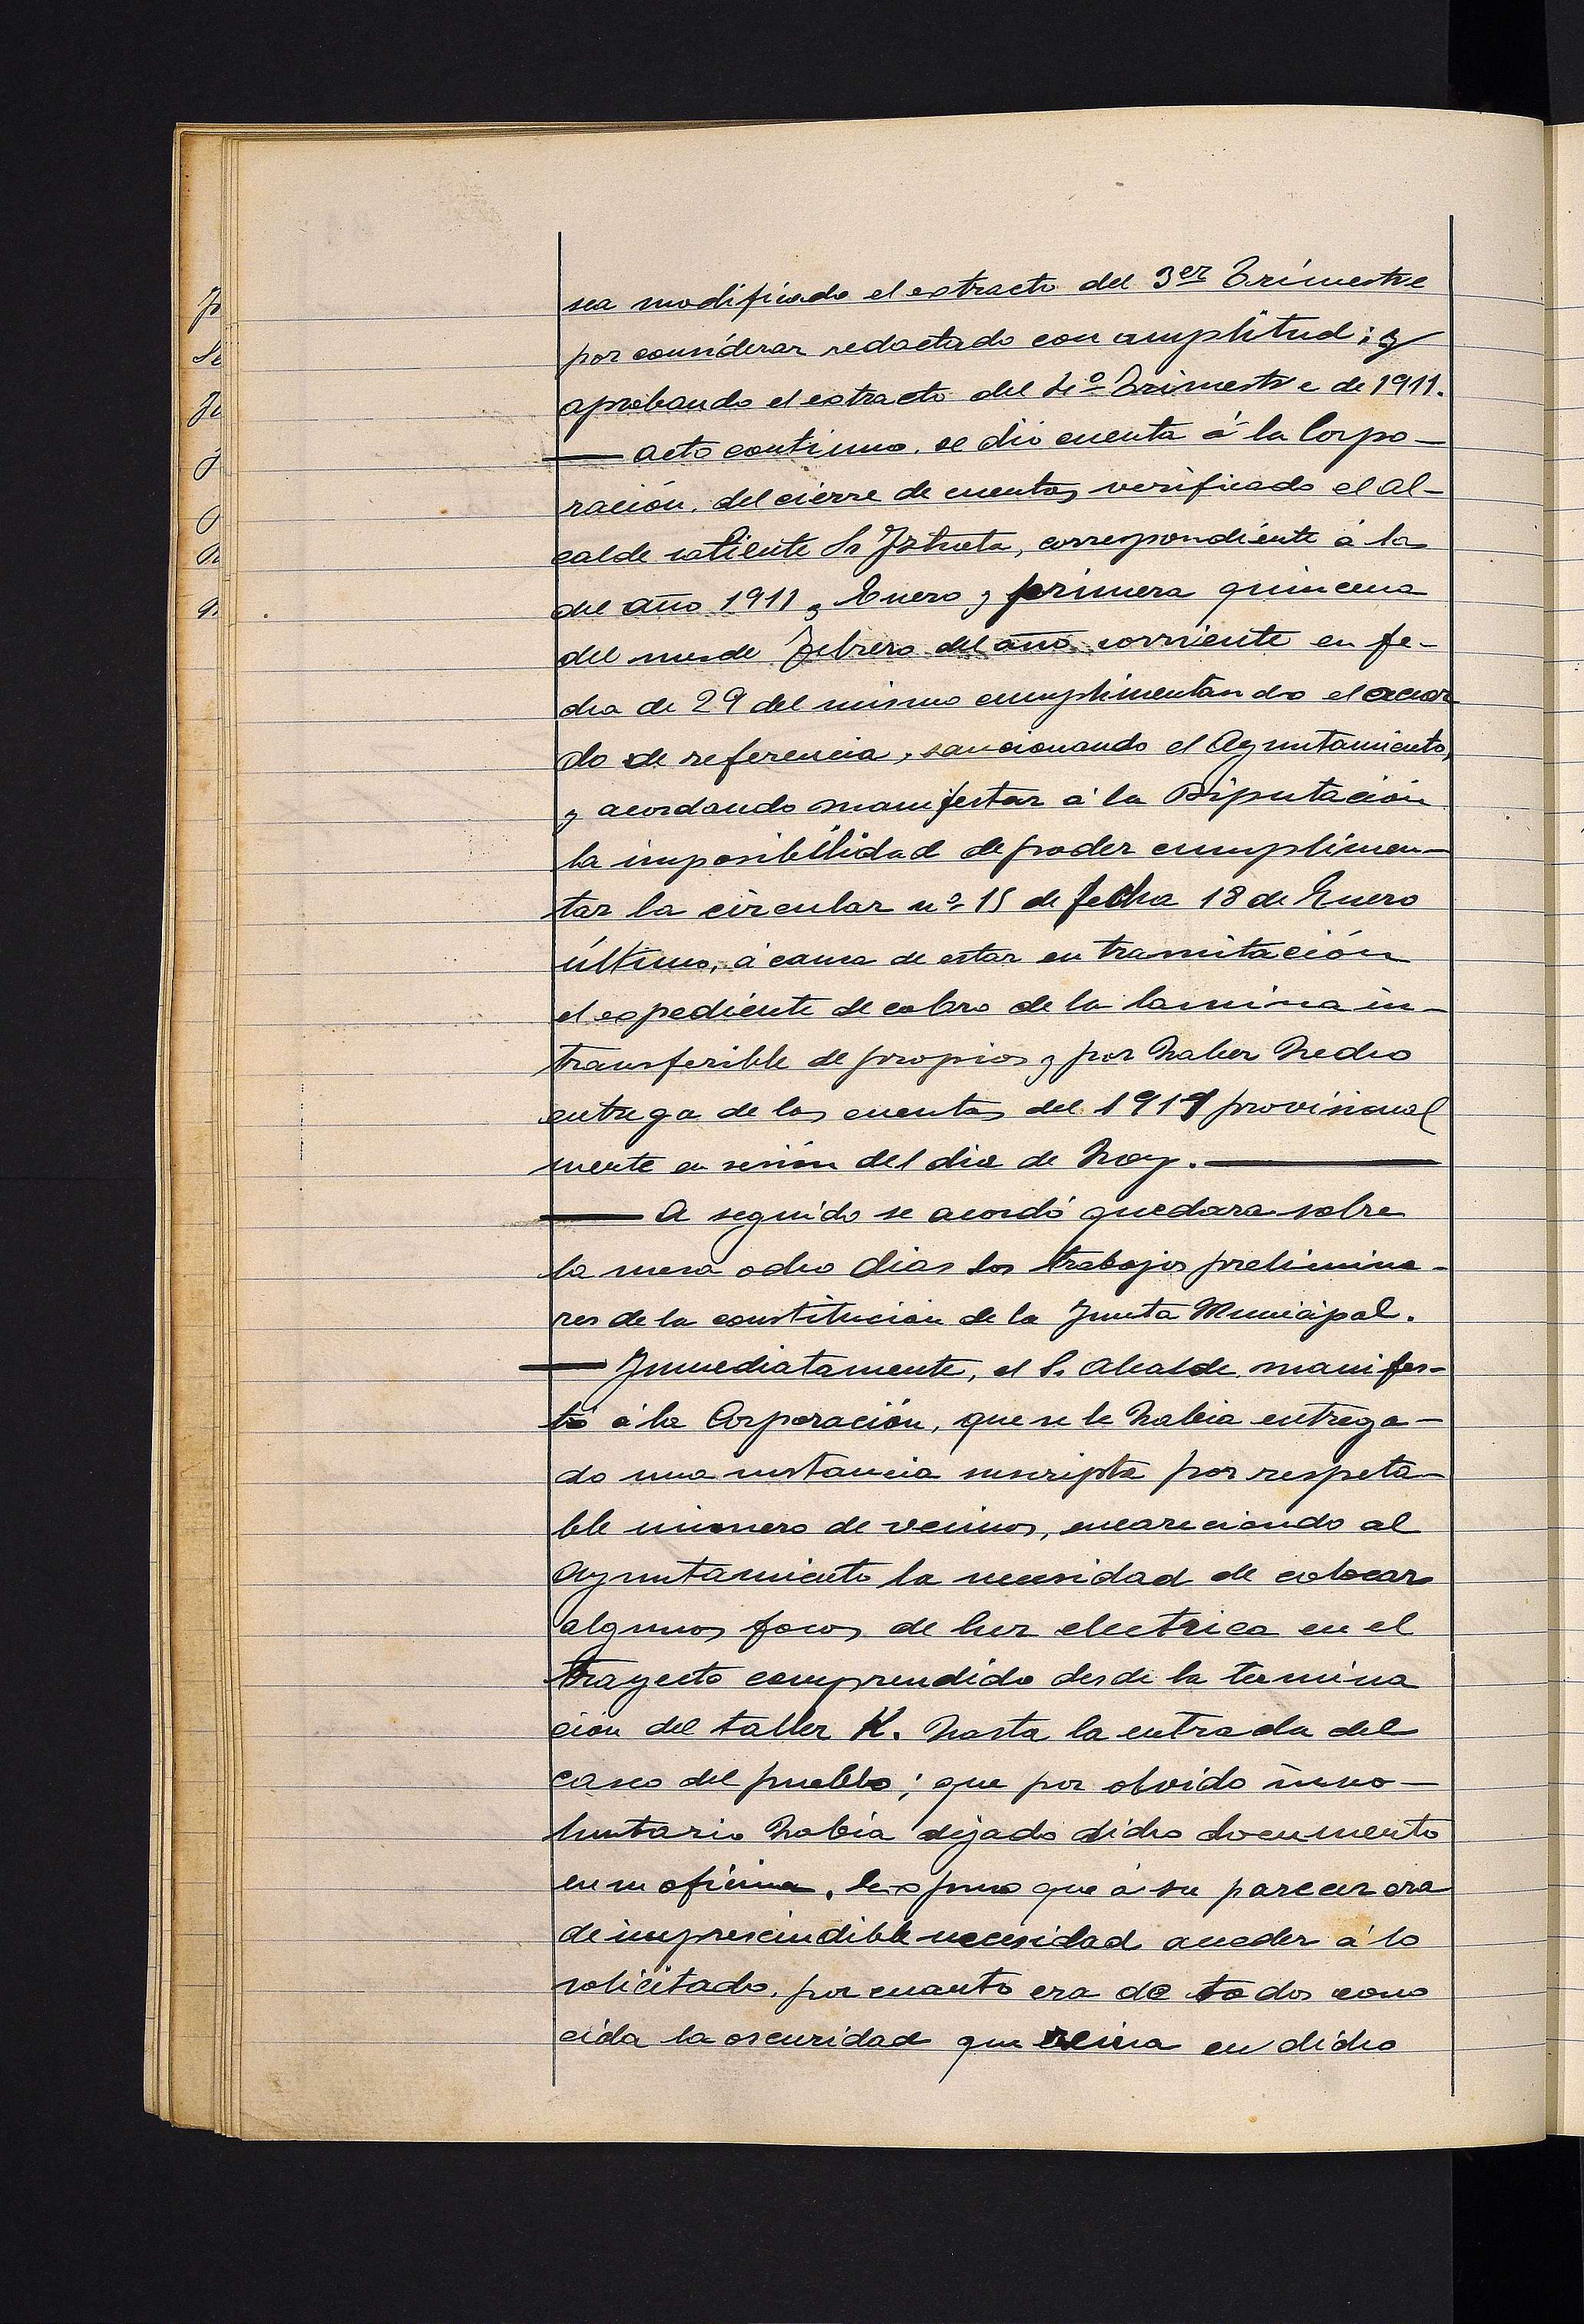 sea modificado el extracto del 3er Trimestre
por considerar redactado con amplitud; y
aprobando el extracto del 4º Trimestre de 1911.
— Acto continuo, se dió cuenta á la Corpo-
ración, del cierre de cuentas verificado el Al-
calde saliente Sr Iztueta, correspondiente á las
del año 1911 y Enero y primera quincena
del mes de Febrero del año corriente en fe-
cha de 29 del mismo cumplimentando el acuer
do de referencia, sancionando el Ayuntamiento,
y acordando manifestar á la Diputación
la imposibilidad de poder cumplimen-
tar la circular nº 15 de fecha 18 de Enero
último, á causa de estar en tramitación
el expediente de cobro de la lamina in-
transferible de propios y por haber hecho
entrega de las cuentas del 1911 provisional
mente en sesión del dia de hoy. —
— A seguido se acordó quedara sobre
la mesa ocho dias los trabajos prelimina-
res de la constitución de la Junta Municipal.
— Inmediatamente, el Sr. Alcalde manifes-
tó á la Corporación, que se le habia entrega-
do una instancia suscripta por respeta-
ble número de vecinos, encareciendo al
Ayuntamiento la necesidad de colocar
algunos focos de luz electrica en el
trayecto comprendido desde la termina
ción del taller K. hasta la entrada del
casco del pueblo; que por olvido invo-
luntario habia dejado dicho documento
en su oficina. Expuso que á su parecer era
de imprescindible necesidad acceder á lo
solicitado, por cuanto era de todos cono
cida la oscuridad que reina en dicho